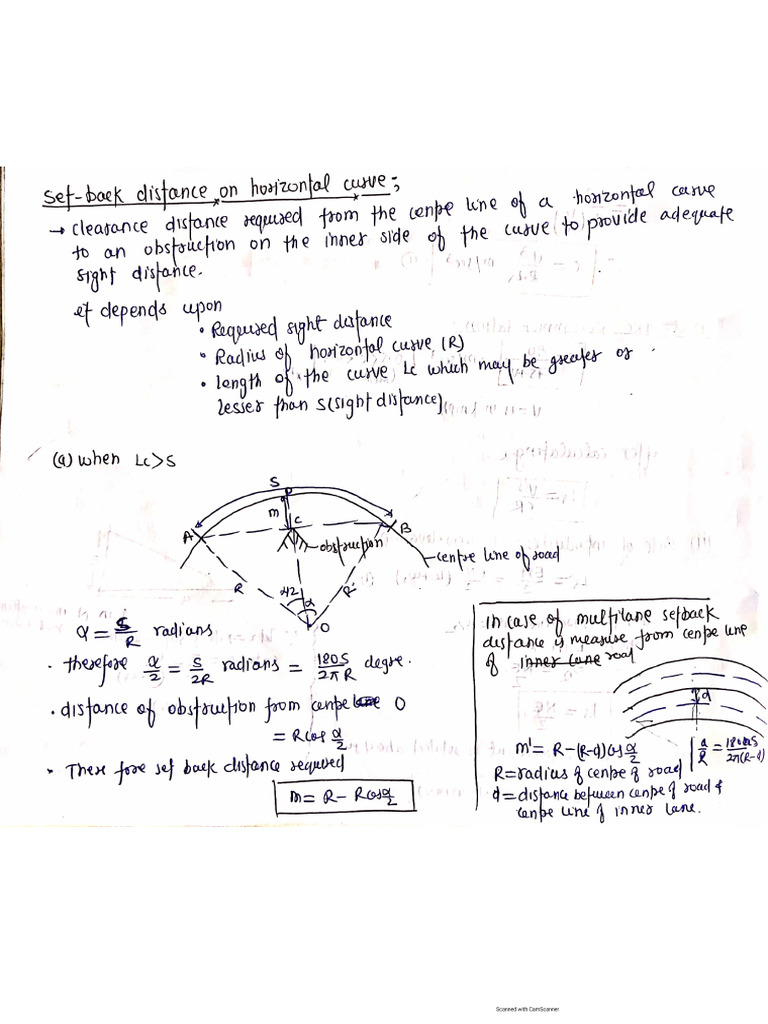 Set-back distance on horizontal curve;
→ Clearance distance required from the centre line of a horizontal curve
to an obstruction on the inner side of the curve to provide adequate
sight distance.
It depends upon
• Required sight distance
• Radius of horizontal curve (R)
• length of the curve Lc which may be greater or
lesser than S(sight distance)
(a) when Lc>S
S
P
m
C
A
B
obstruction
centre line of road
R
α/2
α
R
O
α = S/R radians
• therefore α/2 = S/2R radians = 180S/2πR degree.
• distance of obstruction from centre O
= R cos α/2
• Therefore set back distance required
m = R - R cos α/2
In case of multilane setback
distance is measure from centre line
of inner lane road
d
m' = R - (R-d) cos α/2
α/R = 180S/2π(R-d)
R = radius of centre of road
d = distance between centre of road &
centre line of inner lane.
Scanned with CamScanner